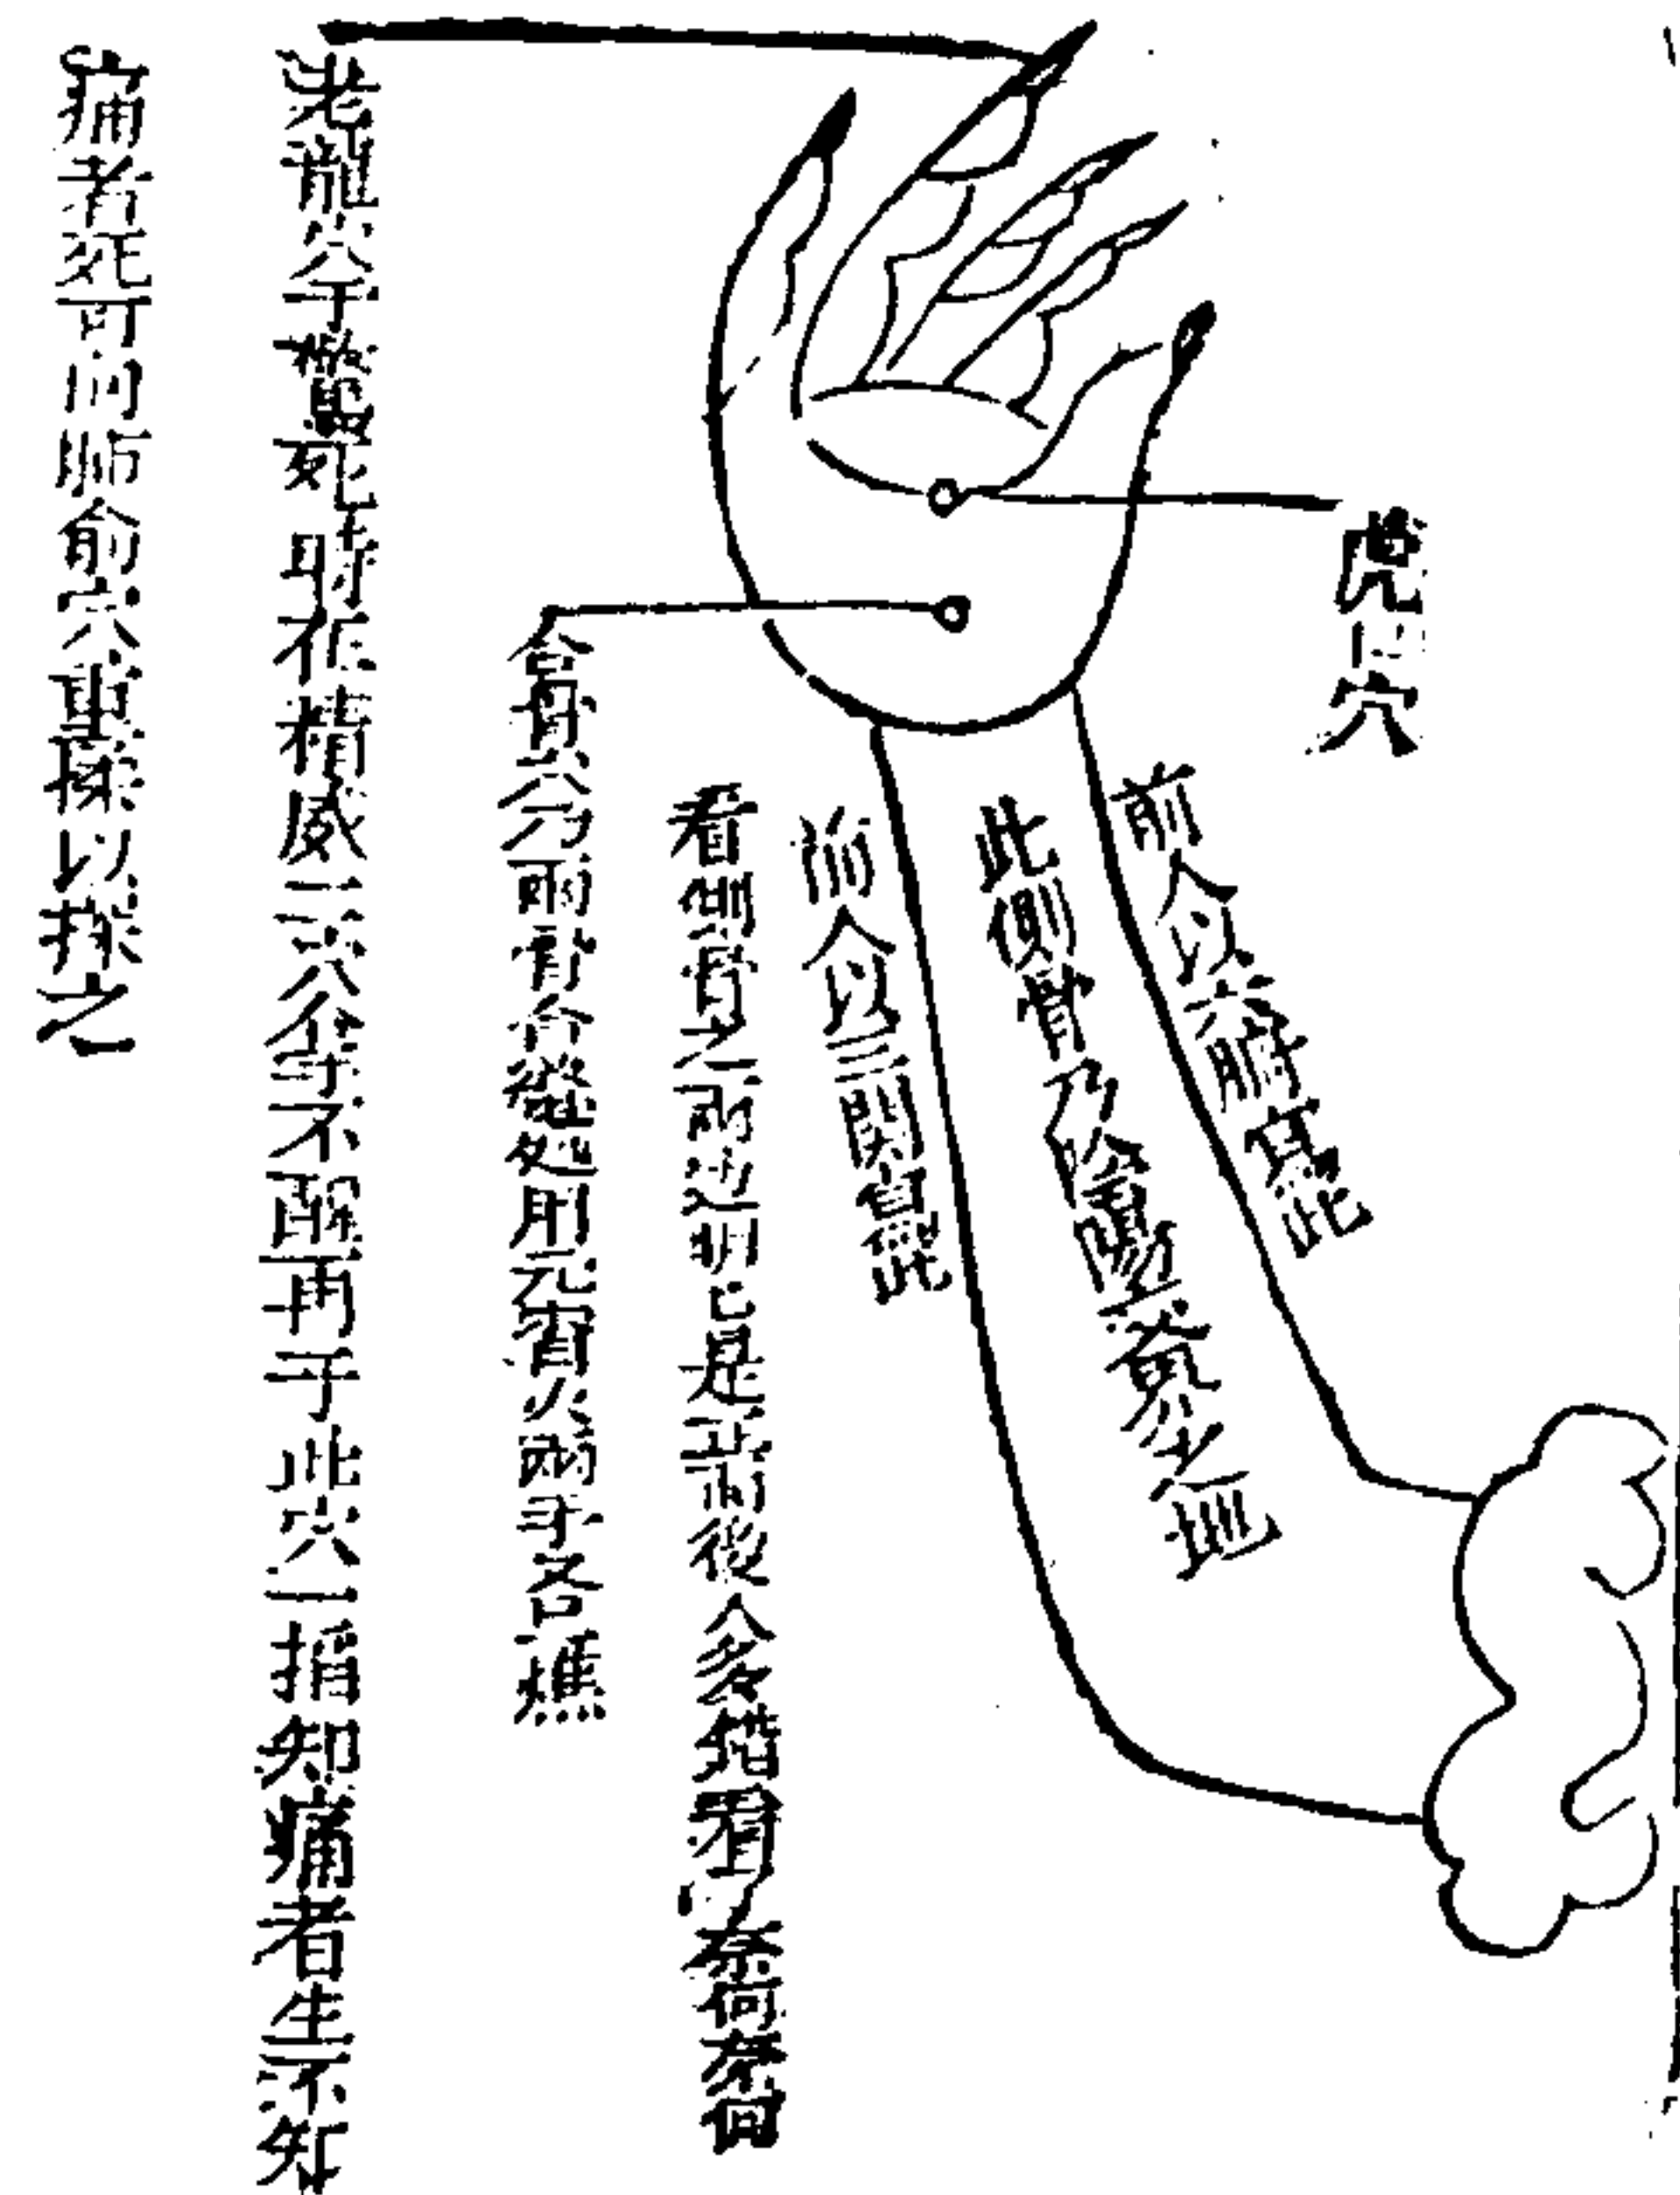 虎口穴
前人以六腑真此
此側骨乃陰陽
前人以三關真此
看側骨之兩邊明明是武前後人多錯看了奈何奈何
合骨穴刀兩骨合縫處用元宵火兩手各樵
老龍穴手驚死時在精威二穴拿不醒再于此穴一掐知痛者生不知
痛者死可向肺俞穴重揉以探之